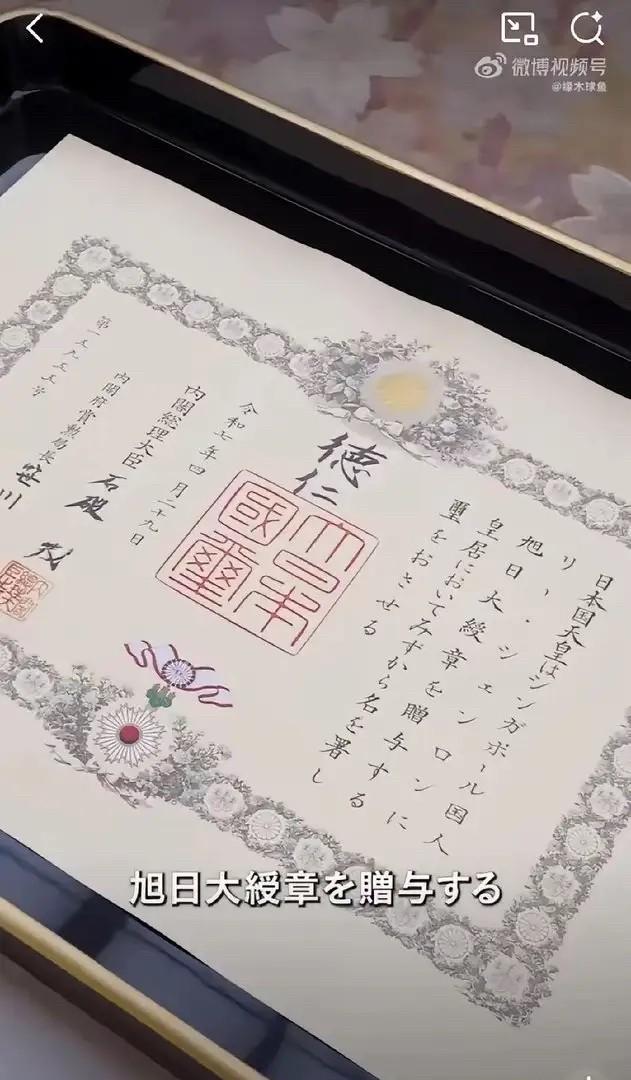 微博视频号
@橡木球鱼
日本国天皇はシンガポール国人
リー・シェンロンに
旭日大綬章を贈与する
皇居においてみずから名を署し
璽をおさせる
徳仁
大日本國璽
令和七年四月二十九日
内閣総理大臣 石破 茂
内閣府賞勲局長 笹川
第一五九五五号
旭日大綬章を贈与する